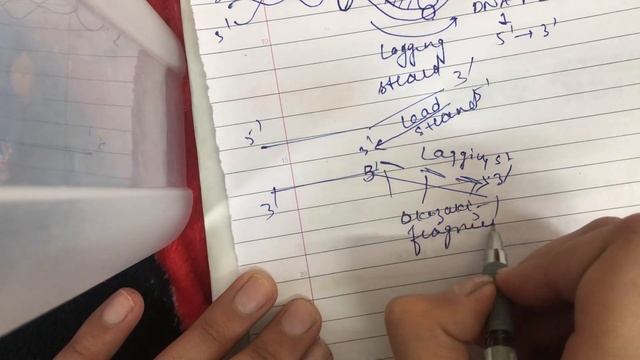 3'
DNA
5' → 3'
Lagging
strand
3'
5'
Lead
strand
5'
3'
3'
Lagging
5'
3'
3'
Okazaki
fragme